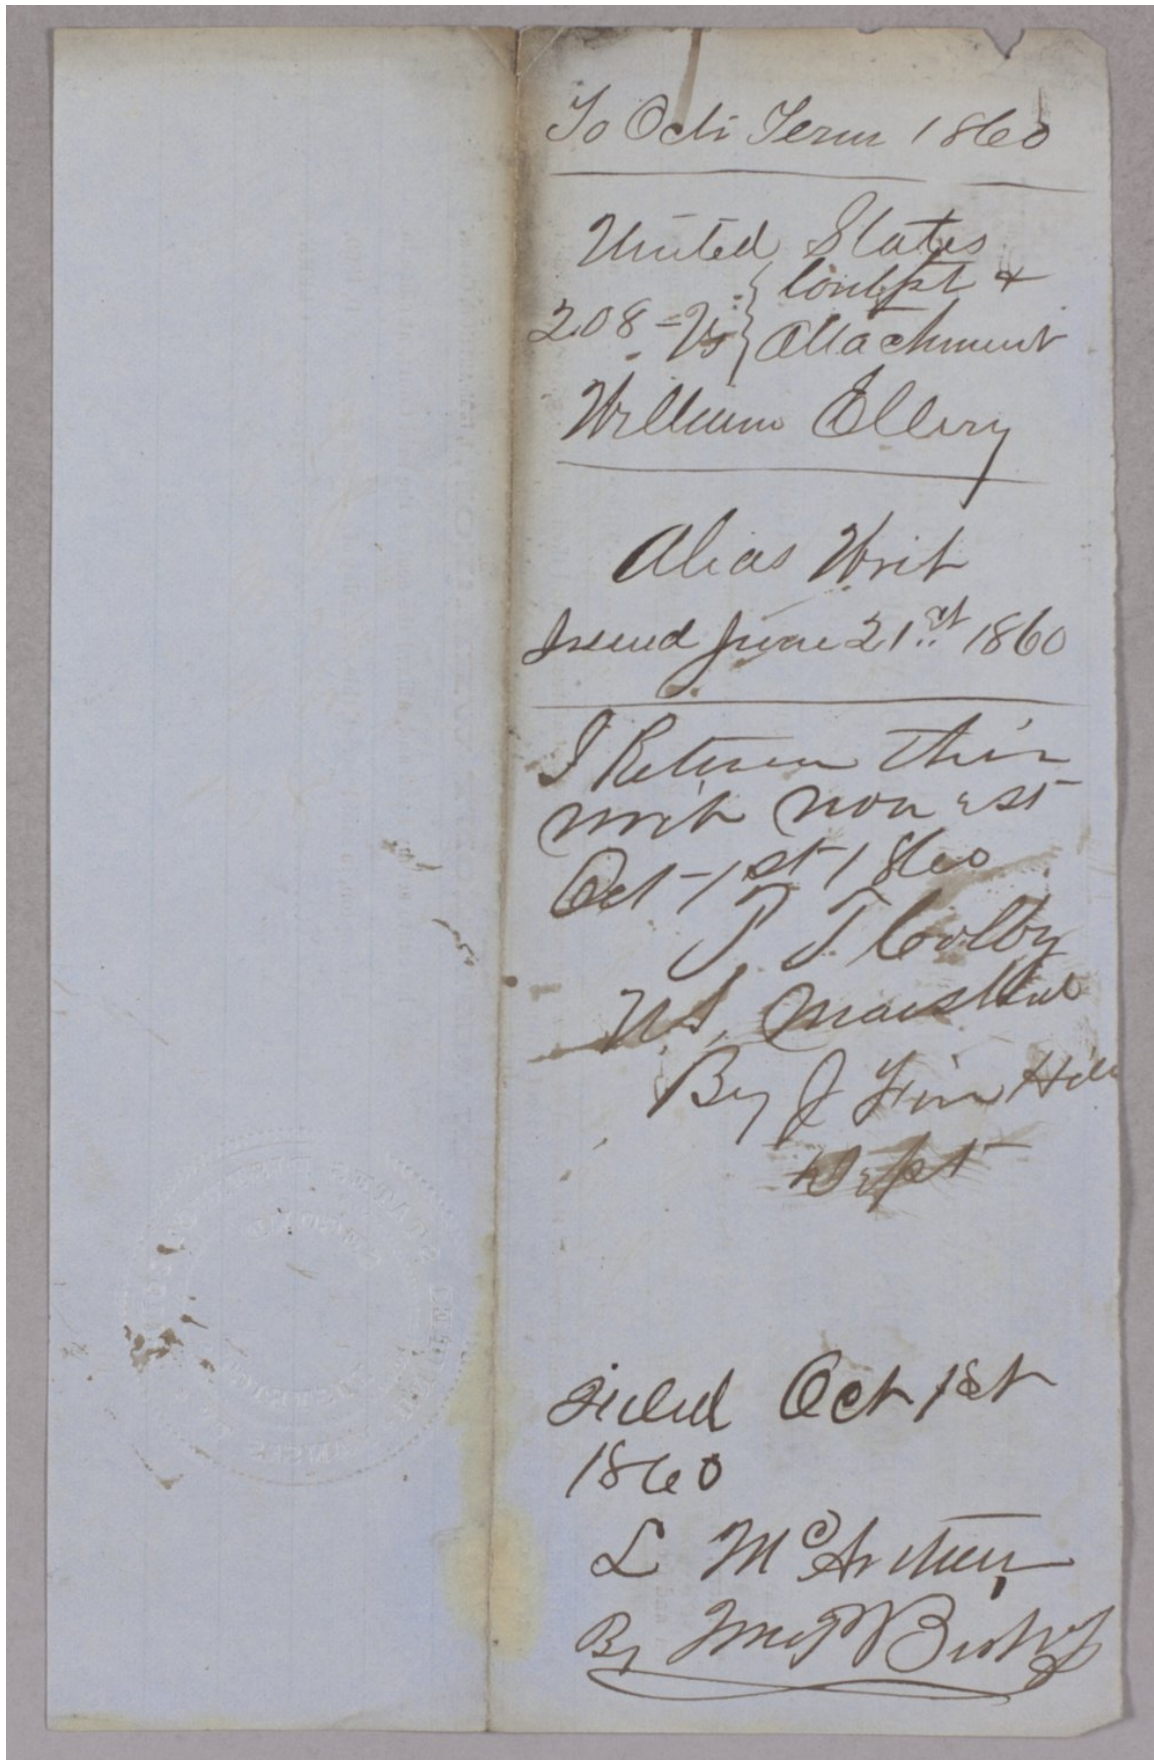 To Oct: Term 1860
United States
Contpt &
208 = Vs Attachment
William Ellery
Alias Writ
Issued June 21st 1860
I Return this
writ non est
Oct 1st 1860
P. T. Colby
U.S. Marshal
By J
Dept
Filed Oct 1st
1860
L McArthur
By